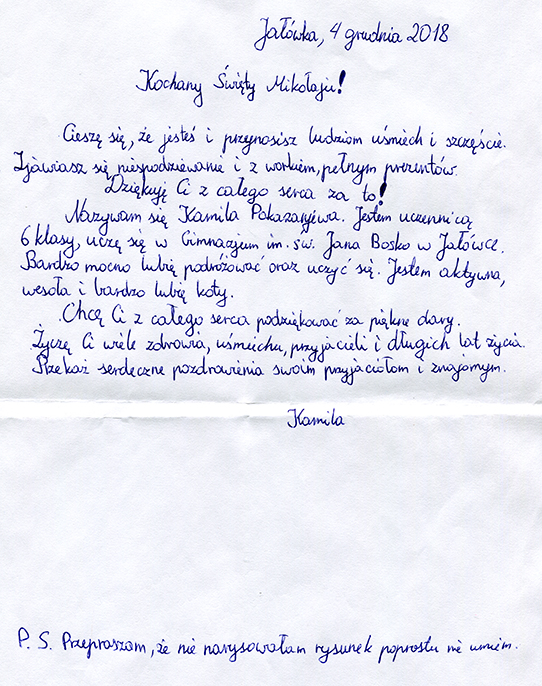 Jałówka, 4 grudnia 2018
Kochany Święty Mikołaju!
Cieszę się, że jesteś i przynosisz ludziom uśmiech i szczęście.
Zjawiasz się niespodziewanie i z workiem, pełnym prezentów.
Dziękuję Ci z całego serca za to!
Nazywam się Kamila Pokazanjewa. Jestem uczennicą
6 klasy, uczę się w Gimnazjum im. św. Jana Bosko w Jałówce.
Bardzo mocno lubię podróżować oraz uczyć się. Jestem aktywna,
wesoła i bardzo lubię koty.
Chcę Ci z całego serca podziękować za piękne dary.
Życzę Ci wiele zdrowia, uśmiechu, przyjacieli i długich lat życia.
Przekaż serdeczne pozdrowienia swoim przyjaciołom i znajomym.
Kamila
P. S. Przepraszam, że nie narysowałam rysunek poprostu nie umiem.